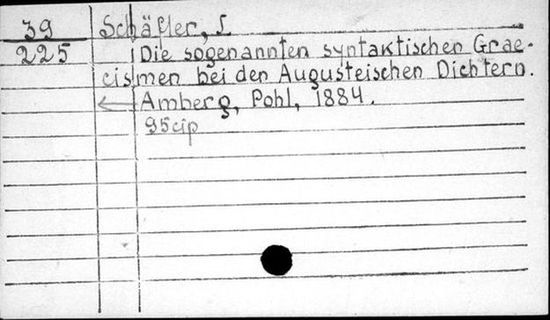 39
225
Schäfler, J.
Die sogenannten syntaktischen Grae-
cismen bei den Augusteischen Dichtern.
Amberg, Pohl, 1884.
95